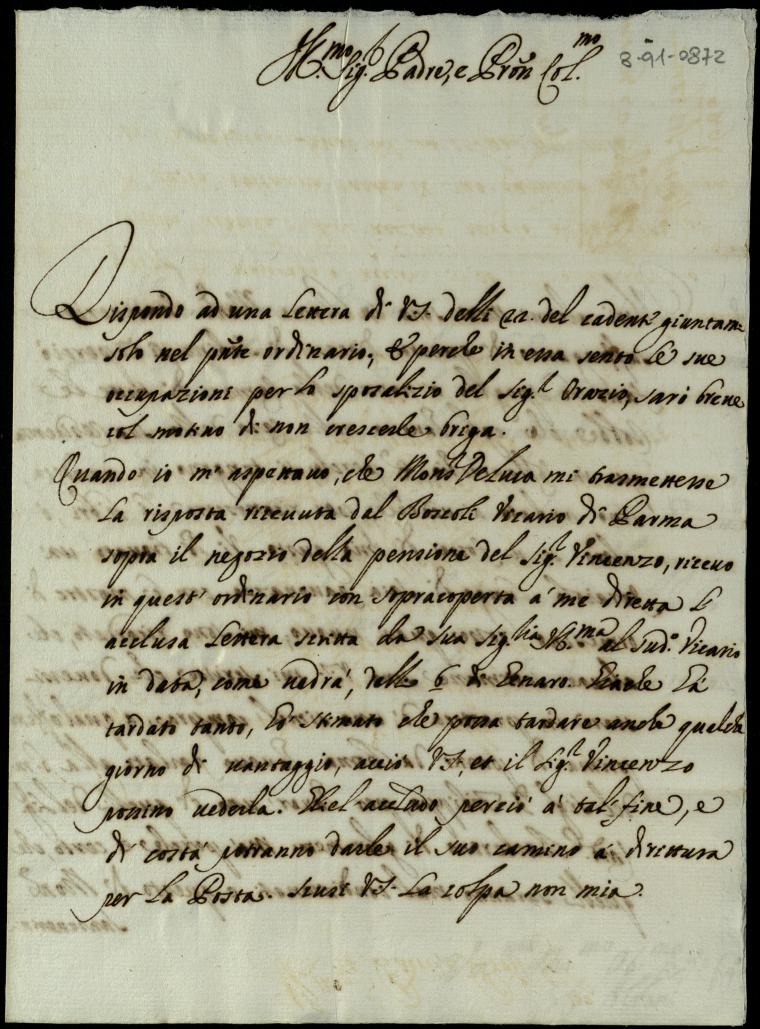 Ill.mo Sig.r Padre, e Pron Col.mo
8-91-0872
Rispondo ad una lettera di V.S. delli 22. del cadente giuntami
solo nel pnte ordinario, & perche in essa sento le sue
occupazioni per lo sposalizio del Sig.r Orazio, sarò breve
col motivo di non crescerle briga.
Quando io m'aspettavo, che Mons.r De Luca mi trasmettesse
la risposta ricevuta dal Boscoli Vicario di Parma
sopra il negozio della pensione del Sig.r Vincenzo, ricevo
in quest'ordinario con sopracoperta à me diretta l'
acclusa lettera scritta da Sua Sig.ria Ill.ma al sud.o Vicario
in data, come vedrà, delli 6 di Genaro. Giache hà
tardato tanto, hò stimato che possa tardare anche qualche
giorno di vantaggio, acciò V.S., et il Sig.r Vincenzo
possino vederla. Gliel'accludo perciò à tal fine, e
di costà potranno darle il suo camino à dirittura
per la Posta. Scusi V.S. la colpa non mia.